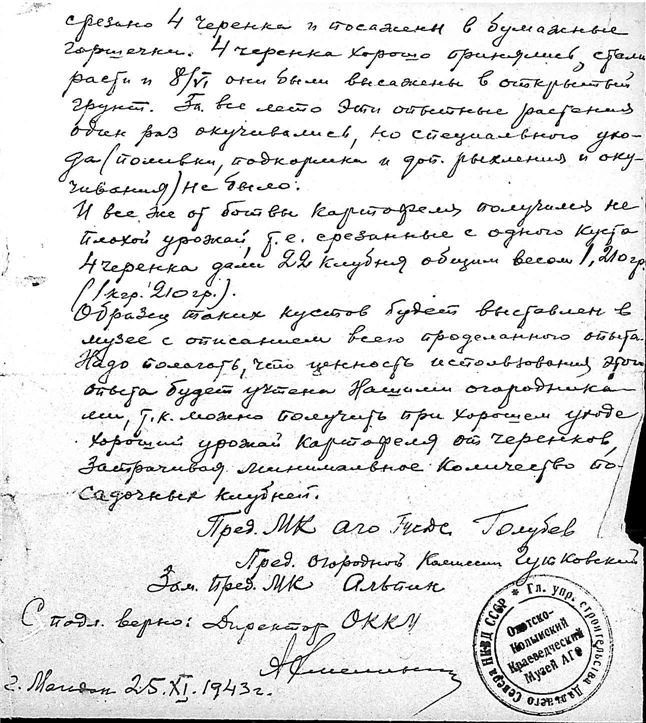 срезано 4 черенка и посажены в бумажные
горшечки. 4 черенка хорошо принялись, стали
расти и 8/VI они были высажены в открытый
грунт. За все лето эти опытные растения
один раз окучивались, но специального ухо-
да (поливки, подкормка и доп. рыхления и оку-
чивания) не было.
И все же от ботвы картофеля получился не
плохой урожай, т.е. срезанные с одного куста
4 черенка дали 22 клубня общим весом 1,210 гр
(1 кгр. 210 гр.).
Образец таких кустов будет выставлен в
музее с описанием всего проделанного опыта.
Надо полагать, что ценность использования этого
опыта будет учтена нашими огородника-
ми, т.к. можно получить при хорошем уходе
хороший урожай картофеля от черенков,
затрачивая минимальное количество по-
садочных клубней.
Пред. МК аго ГУСДС Голубев
Пред. огородной комиссии Гутковский
Зам. пред. МК Альпин
С подл. верно: Директор ОККМ
г. Магадан 25.XI.1943 г.
Гл. упр. строительства Дальнего Севера НКВД СССР *
Охотско-
Колымский
Краеведческий
Музей